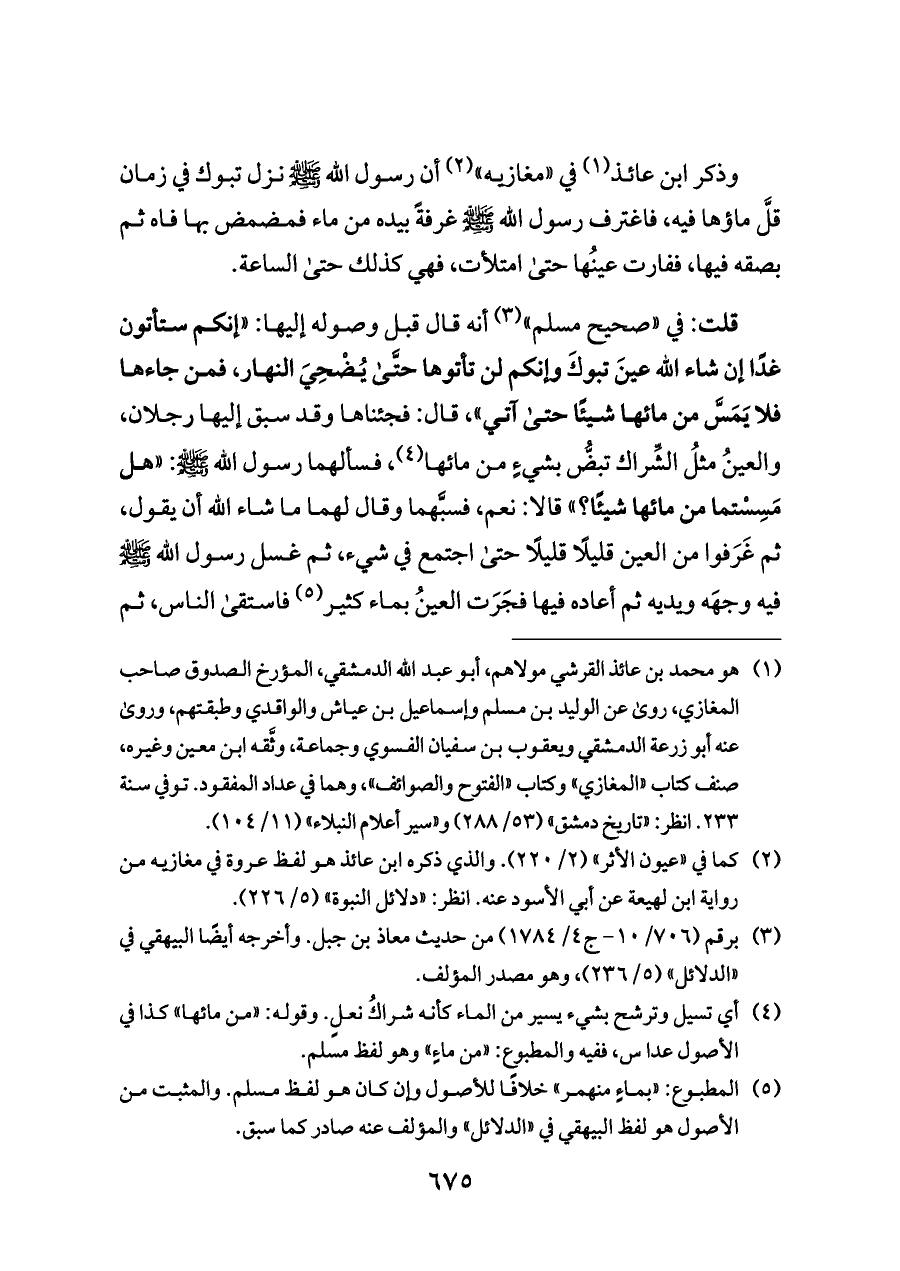 وذكر ابن عائذ(١) في «مغازيه»(٢) أن رسول الله ﷺ نزل تبوك في زمان
قلَّ ماؤها فيه، فاغترف رسول الله ﷺ غرفةً بيده من ماء فمضمض بها فاه ثم
بصقه فيها، ففارت عينُها حتىٰ امتلأت، فهي كذلك حتىٰ الساعة.
قلت: في «صحيح مسلم»(٣) أنه قال قبل وصوله إليها: «إنكم ستأتون
غدًا إن شاء الله عينَ تبوكَ وإنكم لن تأتوها حتَّىٰ يُضْحِيَ النهار، فمن جاءها
فلا يَمَسَّ من مائها شيئًا حتىٰ آتي»، قال: فجئناها وقد سبق إليها رجلان،
والعينُ مثلُ الشِّراك تبضُّ بشيءٍ من مائها(٤)، فسألهما رسول الله ﷺ: «هل
مَسِسْتما من مائها شيئًا؟» قالا: نعم، فسبَّهما وقال لهما ما شاء الله أن يقول،
ثم غَرَفوا من العين قليلًا قليلًا حتىٰ اجتمع في شيء، ثم غسل رسول الله ﷺ
فيه وجهَه ويديه ثم أعاده فيها فجَرَت العينُ بماء كثير(٥) فاستقىٰ الناس، ثم
(١) هو محمد بن عائذ القرشي مولاهم، أبو عبد الله الدمشقي، المؤرخ الصدوق صاحب
المغازي، روىٰ عن الوليد بن مسلم وإسماعيل بن عياش والواقدي وطبقتهم، وروىٰ
عنه أبو زرعة الدمشقي ويعقوب بن سفيان الفسوي وجماعة، وثَّقه ابن معين وغيره،
صنف كتاب «المغازي» وكتاب «الفتوح والصوائف»، وهما في عداد المفقود. توفي سنة
٢٣٣. انظر: «تاريخ دمشق» (٥٣/ ٢٨٨) و«سير أعلام النبلاء» (١١/ ١٠٤).
(٢) كما في «عيون الأثر» (٢/ ٢٢٠). والذي ذكره ابن عائذ هو لفظ عروة في مغازيه من
رواية ابن لهيعة عن أبي الأسود عنه. انظر: «دلائل النبوة» (٥/ ٢٢٦).
(٣) برقم (٧٠٦/ ١٠ - ج٤/ ١٧٨٤) من حديث معاذ بن جبل. وأخرجه أيضًا البيهقي في
«الدلائل» (٥/ ٢٣٦)، وهو مصدر المؤلف.
(٤) أي تسيل وترشح بشيء يسير من الماء كأنه شراكُ نعلٍ. وقوله: «من مائها» كذا في
الأصول عدا س، ففيه والمطبوع: «من ماءٍ» وهو لفظ مسلم.
(٥) المطبوع: «بماءٍ منهمر» خلافًا للأصول وإن كان هو لفظ مسلم. والمثبت من
الأصول هو لفظ البيهقي في «الدلائل» والمؤلف عنه صادر كما سبق.
٦٧٥